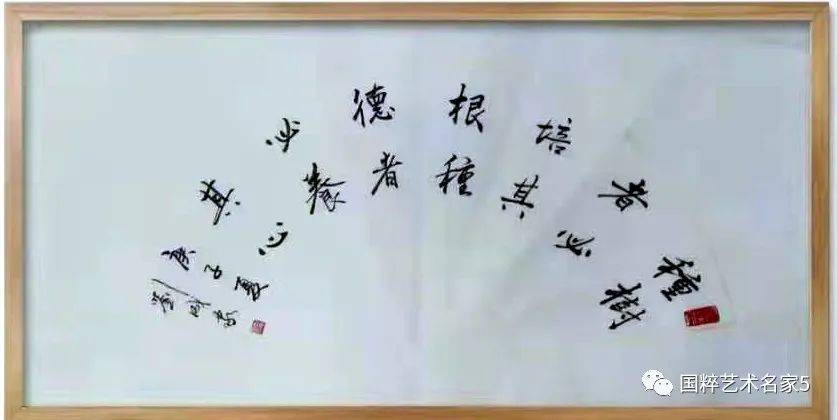 種樹
者必
培其
根種
德者
必養
其心
庚子夏
劉
国粹艺术名家5